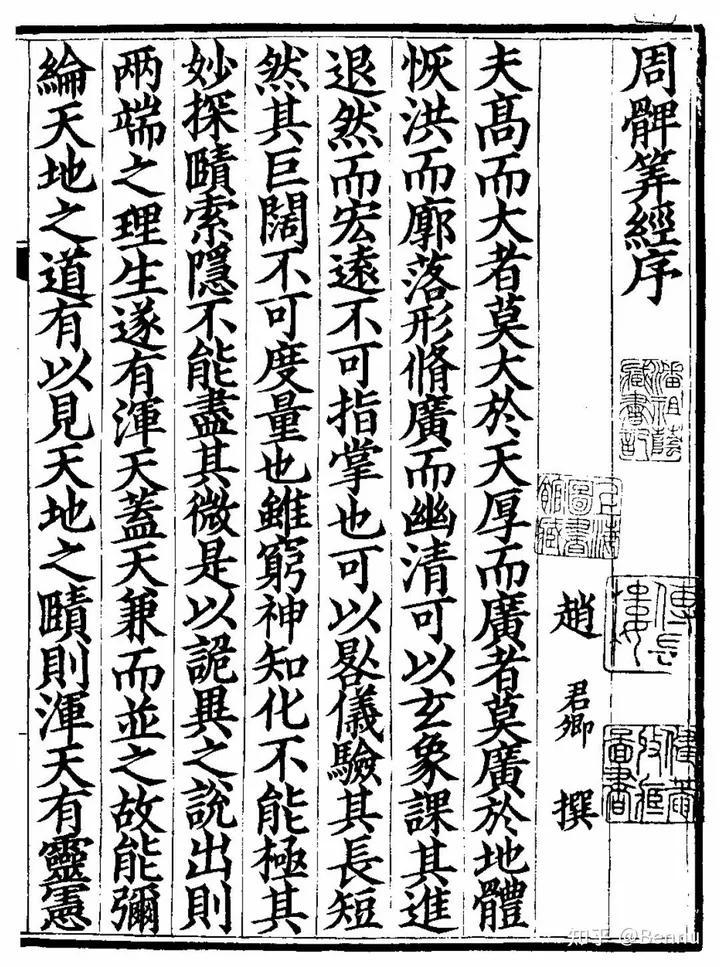 周髀筭經序
潘祖蔭
藏書記
上海
圖書
館藏
趙 君卿 撰
夫髙而大者莫大於天厚而廣者莫廣於地體
恢洪而廓落形脩廣而幽清可以玄象課其進
退然而宏遠不可指掌也可以晷儀驗其長短
然其巨闊不可度量也雖窮神知化不能極其
妙探賾索隱不能盡其微是以詭異之說出則
兩端之理生遂有渾天蓋天兼而並之故能彌
綸天地之道有以見天地之賾則渾天有靈憲
知乎